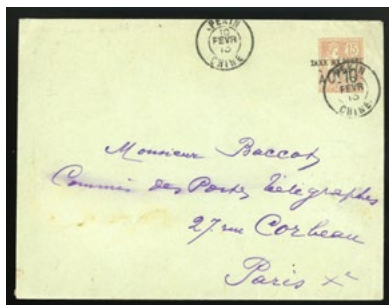 PEKIN
10
FEVR
13
CHINE
15
PEKIN
10
FEVR
13
CHINE
Monsieur Baccot
Commis des Postes Télégraphes
27 rue Corbeau
Paris Xe